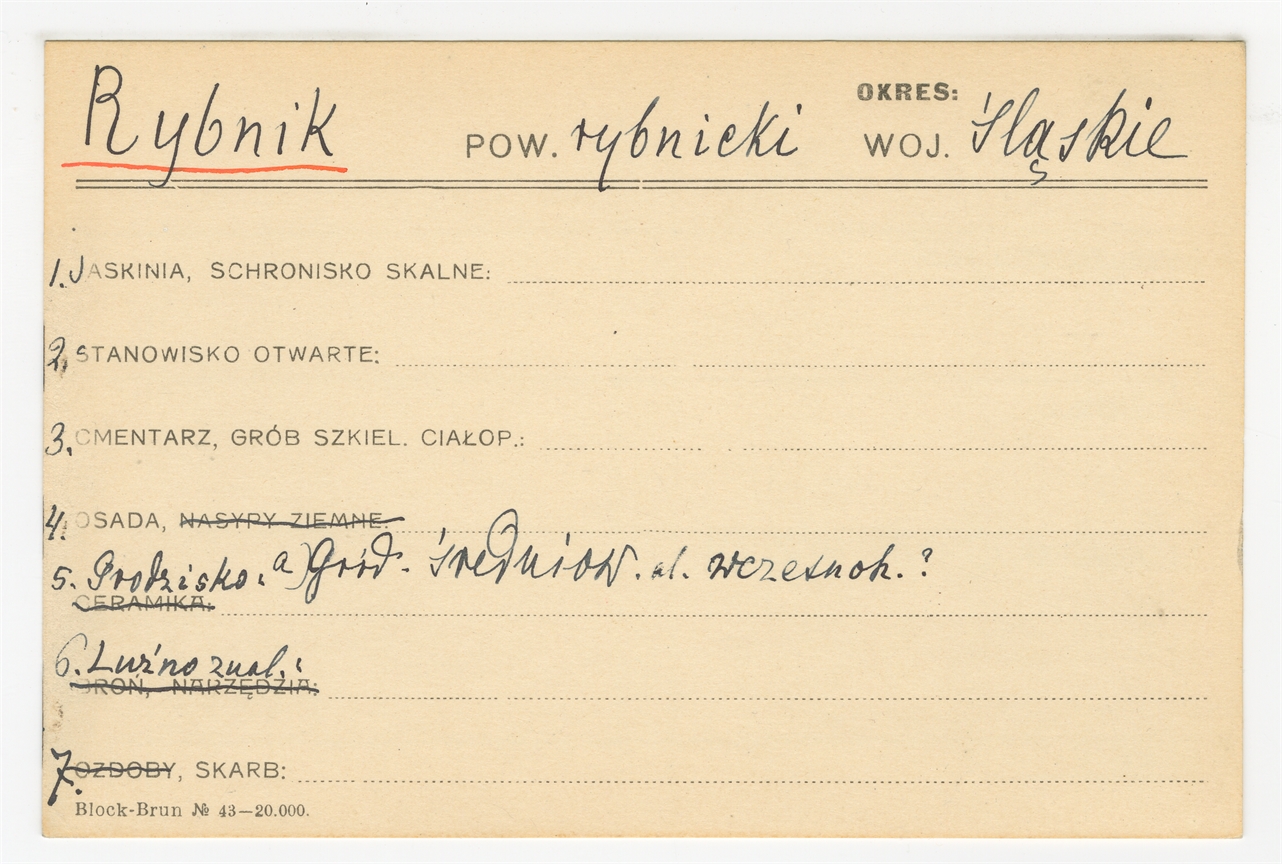 OKRES:
Rybnik POW. rybnicki WOJ. śląskie
1. JASKINIA, SCHRONISKO SKALNE:
2. STANOWISKO OTWARTE:
3. CMENTARZ, GRÓB SZKIEL. CIAŁOP.:
4. OSADA, NASYPY ZIEMNE:
5. Grodzisko: a) Gród. średniow. al. wczesnoh.?
CERAMIKA:
6. Luźno znal.:
BROŃ, NARZĘDZIA:
7. OZDOBY, SKARB:
Block-Brun № 43—20.000.